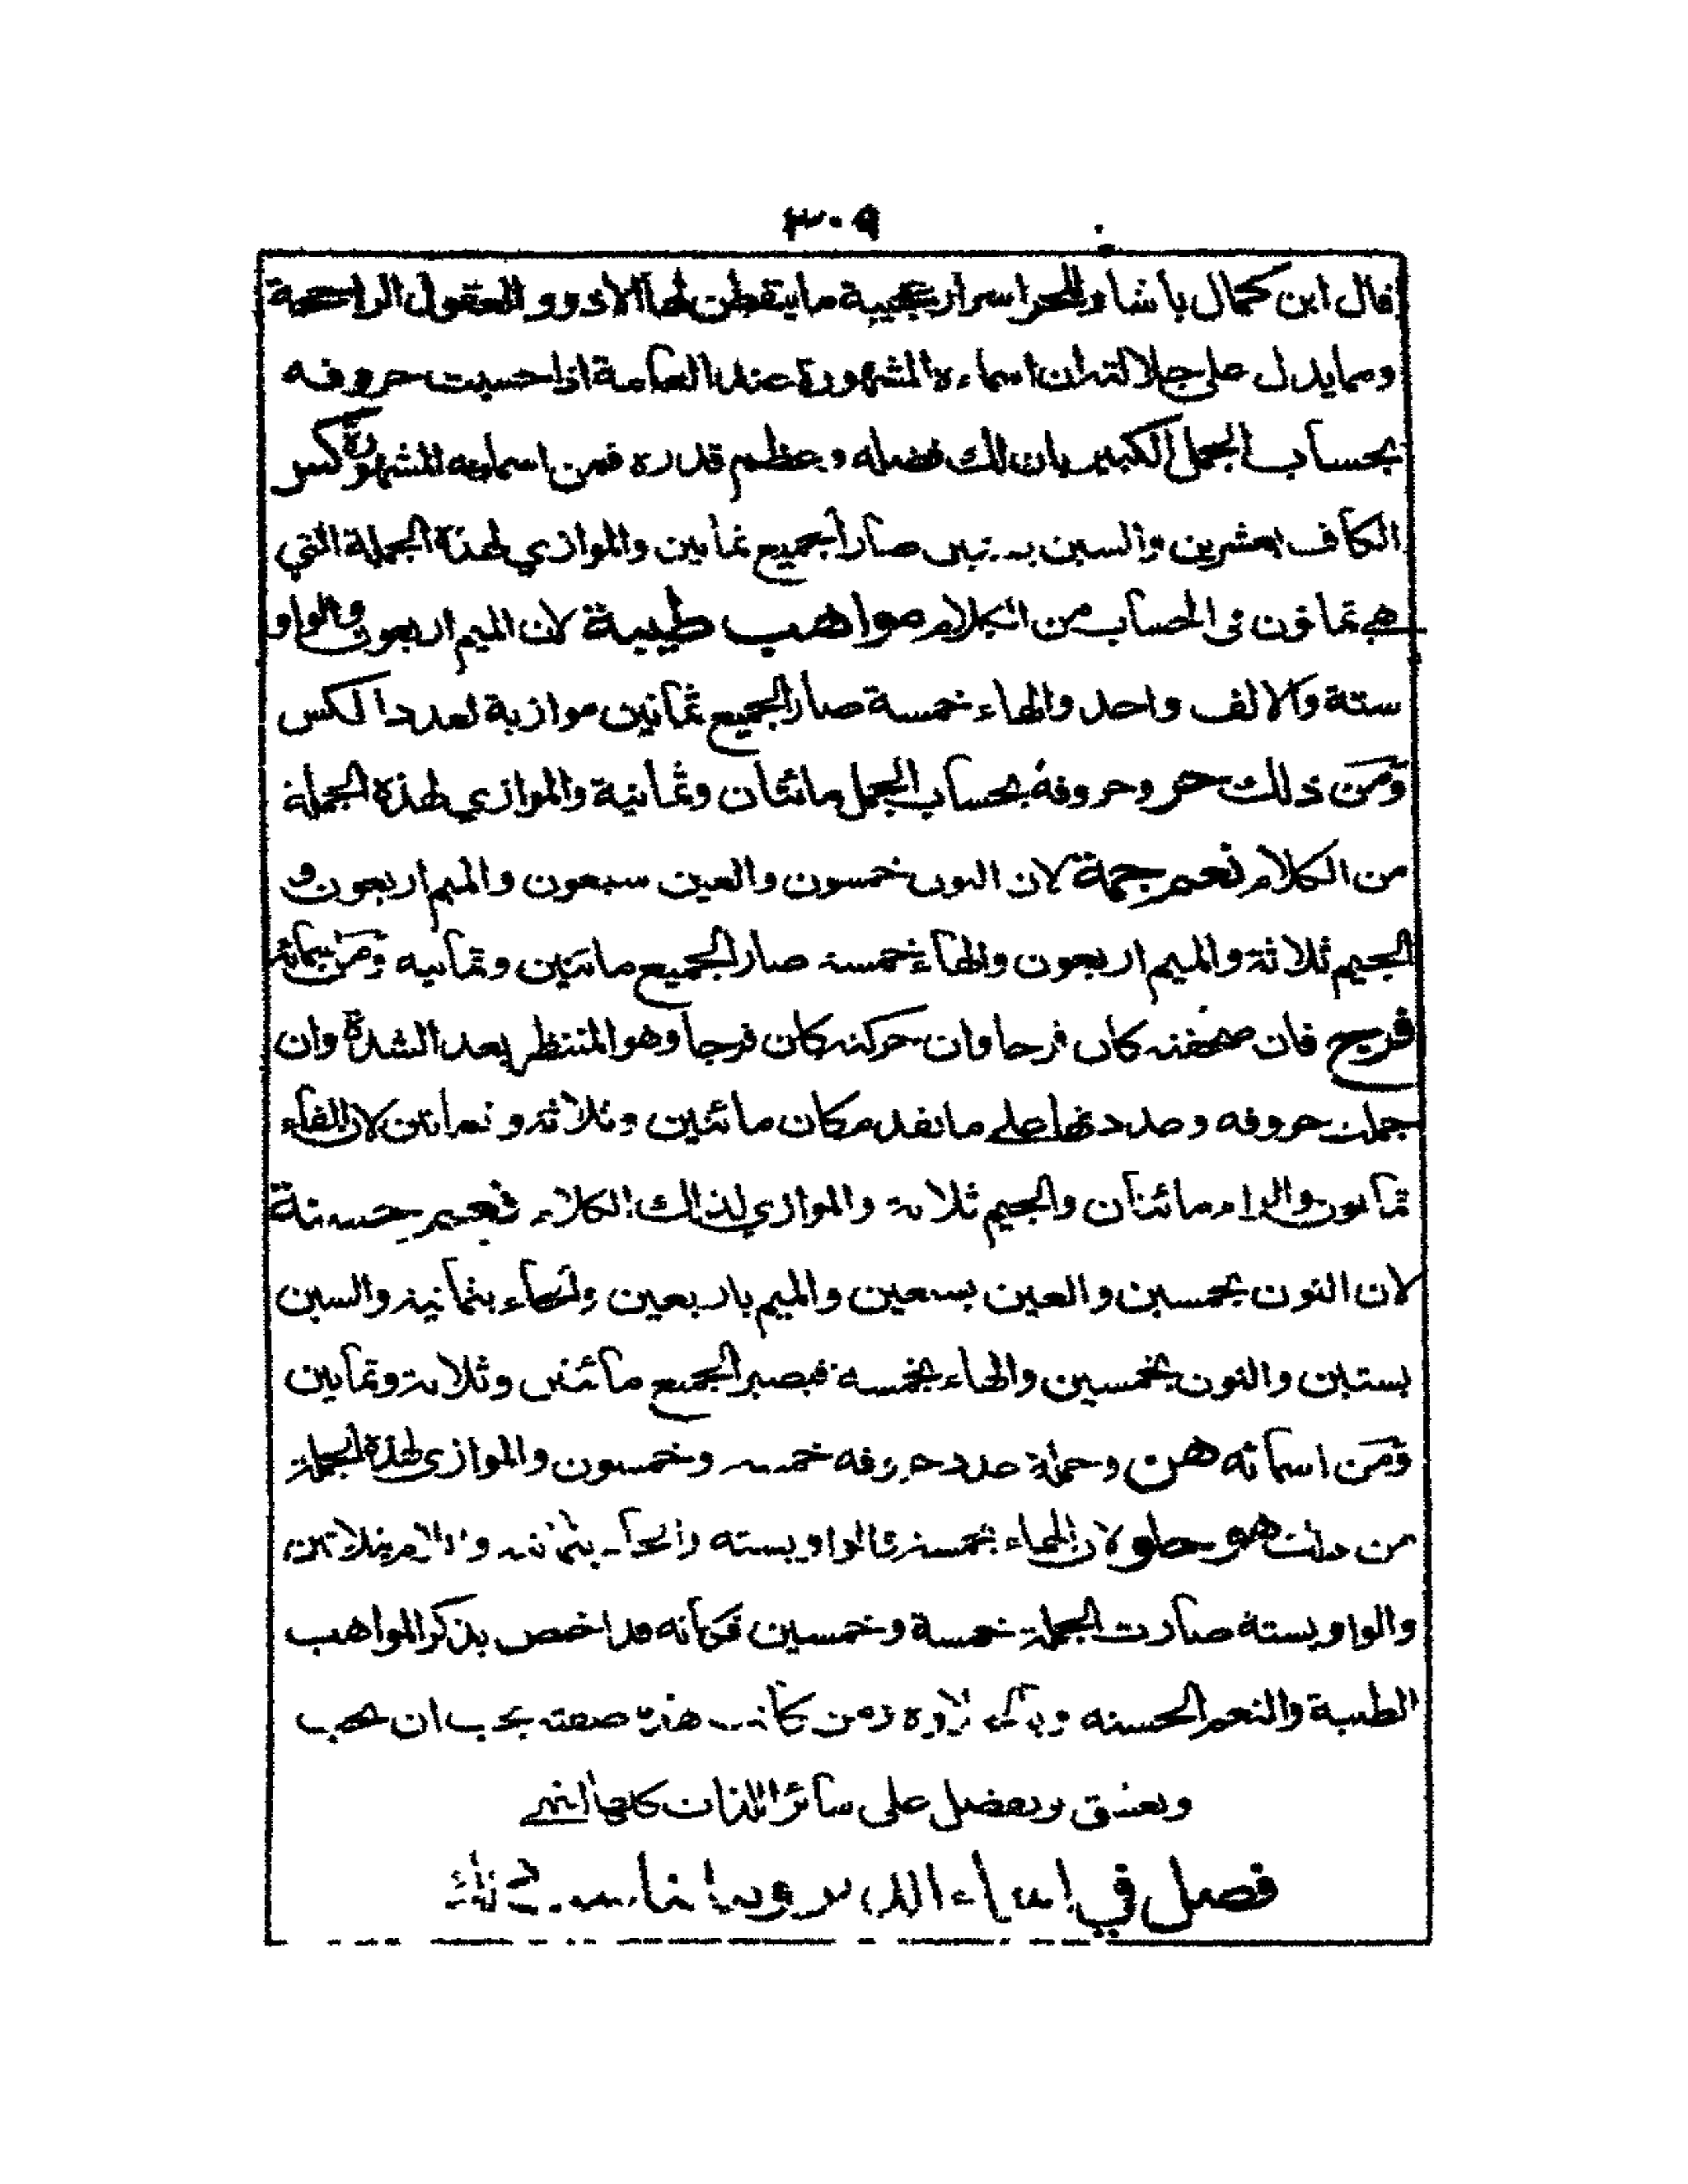 ٣٠٩
قال ابن كمال باشا وللحر اسرار عجيبة ما يتفطن لها الا ذوو العقول الراجحة
ومما يدل على جلالته ان اسماءه المشهورة عند العامة اذا حسبت حروفه
بحساب الجمل الكبير بان لك فضله وعظم قدره فمن اسمايه المشهورة كس
الكاف بعشرين والسين بستين صار الجميع ثمانين والموازي لهذه الجملة التي
هي ثمانون في الحساب من الكلام مواهب طيبة لان الميم اربعون والواو
ستة والالف واحد والهاء خمسة صار الجميع ثمانين موازية لعدد الكس
ومن ذلك حر وحروفه بحساب الجمل مائتان وثمانية والموازي لهذه الجملة
من الكلام نعم جمة لان النون خمسون والعين سبعون والميم اربعون و
الجيم ثلاثة والميم اربعون والهاء خمسة صار الجميع مائتين وثمانيه ومن
فرج فان صحفته كان فرحا وان حركته كان فرجا وهو المنتظر بعد الشدة وان
جملت حروفه وعددتها على ما نفد مكان مائتين وثلاثة وثمانين لان الفاء
ثمانون والراء مائتان والجيم ثلاثة والموازي لذلك الكلام نعم حسنة
لان النون بخمسين والعين بسبعين والميم باربعين والحاء بثمانية والسين
بستين والنون بخمسين والهاء بخمسه فيصير الجميع مائتين وثلاثة وثمانين
ومن اسمائه هن وجملة عدد حروفه خمسه وخمسون والموازي لهذه الجملة
من ذلك هو حلو لان الهاء بخمسة والواو بسته والحاء بثمانيه واللام بثلاثين
والواو بستة صارت الجملة خمسة وخمسين فكانه قد اختص بذكر المواهب
الطيبة والنعم الحسنه ومن كانت هذه صفته يجب ان يحب
ويعشق ويفضل على سائر اللذات كلها انتهى
فصل في اسماء